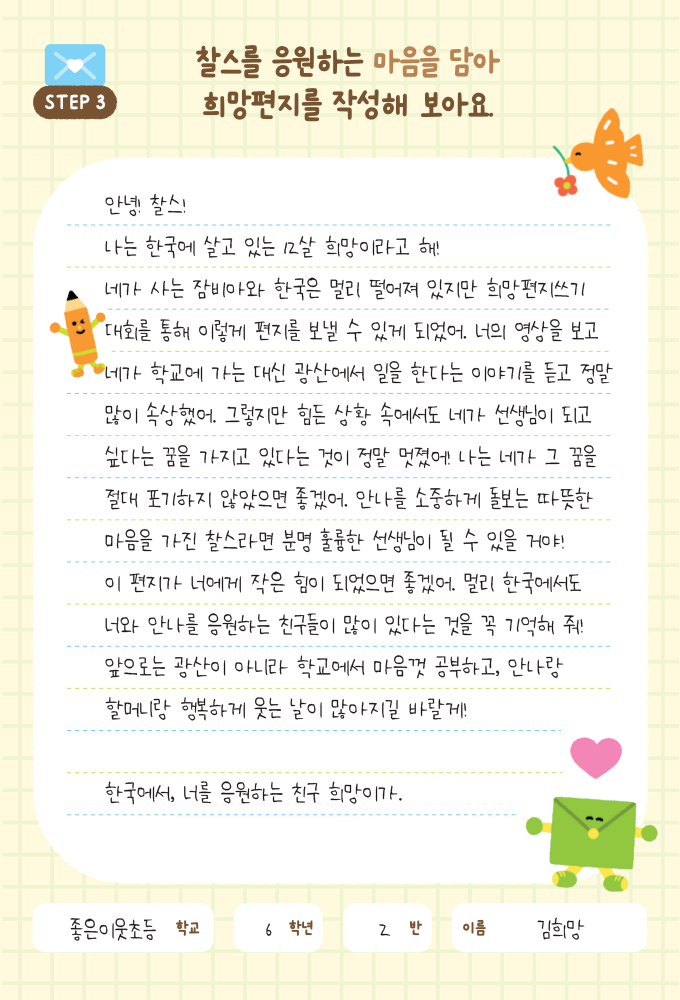 STEP 3
찰스를 응원하는 마음을 담아
희망편지를 작성해 보아요.
안녕! 찰스!
나는 한국에 살고 있는 12살 희망이라고 해!
네가 사는 잠비아와 한국은 멀리 떨어져 있지만 희망편지쓰기
대회를 통해 이렇게 편지를 보낼 수 있게 되었어. 너의 영상을 보고
네가 학교에 가는 대신 광산에서 일을 한다는 이야기를 듣고 정말
많이 속상했어. 그렇지만 힘든 상황 속에서도 네가 선생님이 되고
싶다는 꿈을 가지고 있다는 것이 정말 멋졌어! 나는 네가 그 꿈을
절대 포기하지 않았으면 좋겠어. 안나를 소중하게 돌보는 따뜻한
마음을 가진 찰스라면 분명 훌륭한 선생님이 될 수 있을 거야!
이 편지가 너에게 작은 힘이 되었으면 좋겠어. 멀리 한국에서도
너와 안나를 응원하는 친구들이 많이 있다는 것을 꼭 기억해 줘!
앞으로는 광산이 아니라 학교에서 마음껏 공부하고, 안나랑
할머니랑 행복하게 웃는 날이 많아지길 바랄게!
한국에서, 너를 응원하는 친구 희망이가.
좋은이웃초등 학교 6 학년 2 반 이름 김희망